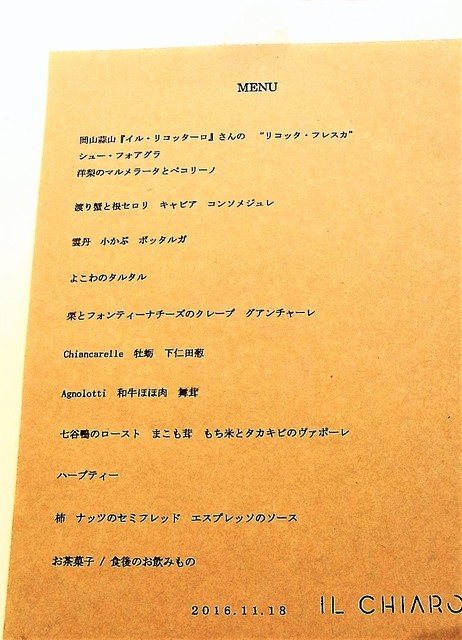 MENU
岡山蒜山『イル・リコッターロ』さんの　“リコッタ・フレスカ”
シュー・フォアグラ
洋梨のマルメラータとペコリーノ
渡り蟹と根セロリ　キャビア　コンソメジュレ
雲丹　小かぶ　ボッタルガ
よこわのタルタル
栗とフォンティーナチーズのクレープ　グアンチャーレ
Chiancarelle　牡蛎　下仁田葱
Agnolotti　和牛ほほ肉　舞茸
七谷鴨のロースト　まこも茸　もち米とタカキビのヴァポーレ
ハーブティー
柿　ナッツのセミフレッド　エスプレッソのソース
お茶菓子 / 食後のお飲みもの
2016.11.18
IL CHIARO